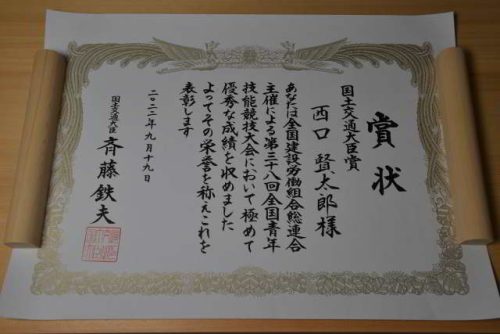 賞状
国土交通大臣賞
西口 賢太郎 様
あなたは全国建設労働組合総連合
主催による第三十八回全国青年
技能競技大会において極めて
優秀な成績を収めました
よってその栄誉を称えこれを
表彰します
二〇二三年九月十九日
国土交通大臣 斉藤鉄夫